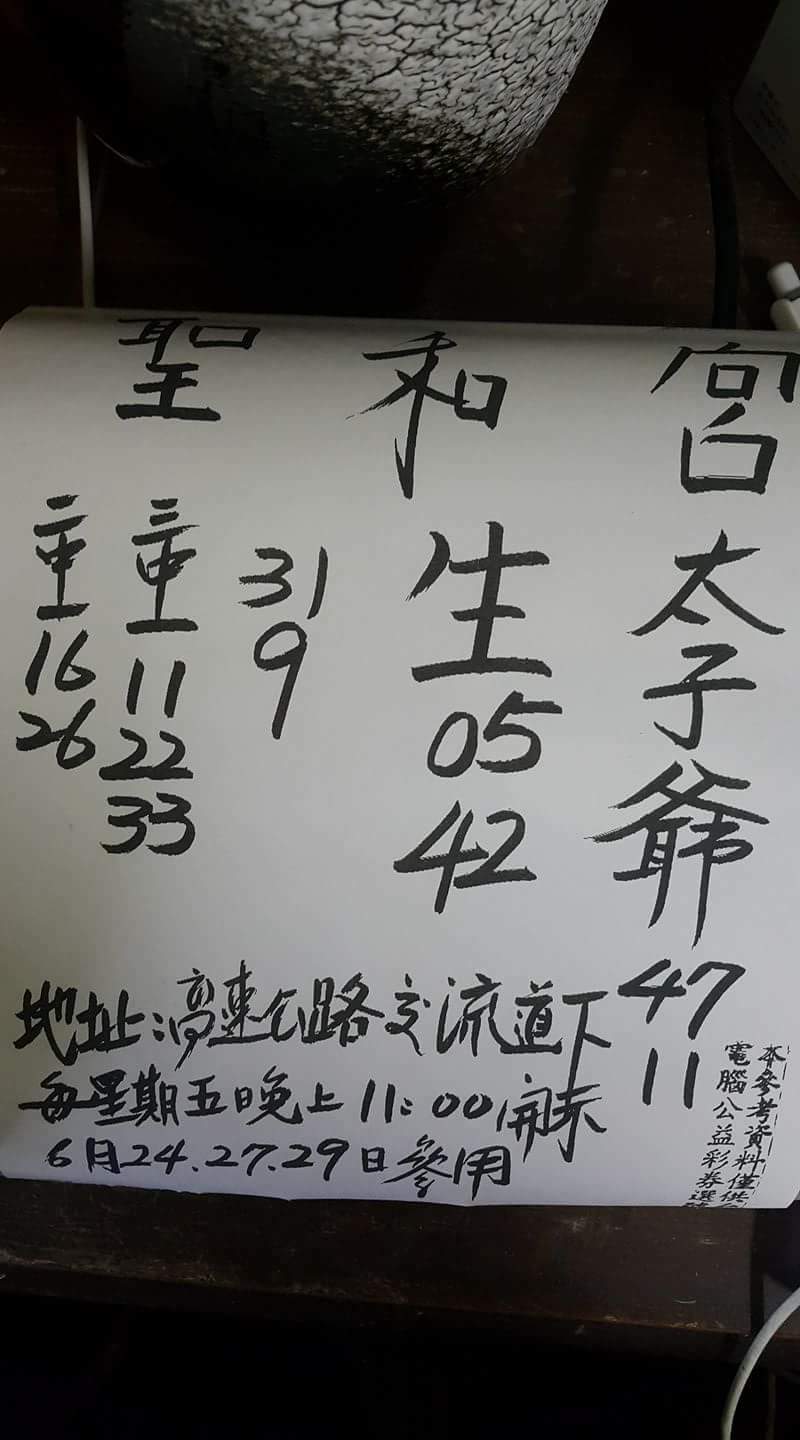 聖和宮
太子爺 47 11
生 05 42
31 9
三中一 11 22 33
二中一 16 26
地址:高速公路交流道下
每星期五晚上11:00開示
6月24.27.29日參用
本參考資料僅供
電腦公益彩券選